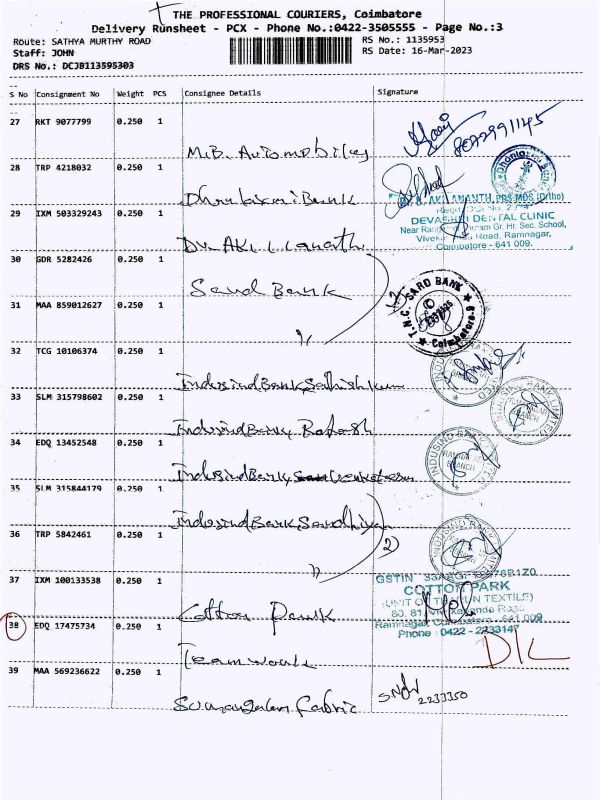 THE PROFESSIONAL COURIERS, Coimbatore
Delivery Runsheet - PCX - Phone No.:0422-3505555 - Page No.:3
Route: SATHYA MURTHY ROAD
RS No.: 1135953
Staff: JOHN
RS Date: 16-Mar-2023
DRS No.: DCJB113595303
S No Consignment No Weight PCS Consignee Details Signature
27 RKT 9077799 0.250 1
M.B. Automobiles
8072991145
28 TRP 4218032 0.250 1
Dhanlaxmi Bank
29 IXM 503329243 0.250 1
ANANTH
DEVASHRI DENTAL CLINIC
Gr. Hr. Sec. School,
Road, Ramnagar,
Coimbatore - 641 009.
30 GDR 5282426 0.250 1
Bank
T.N.C. SARD BANK
Coimbatore-9
31 MAA 859012627 0.250 1
32 TCG 10106374 0.250 1
Indusind Bank, Sathishkum
33 SLM 315798602 0.250 1
Indusind Bank
34 EDQ 13452548 0.250 1
Indusind Bank
INDUSIND BANK LIMITED
BRANCH
35 SLM 315844179 0.250 1
Indusind Bank, Sandhiya
2)
36 TRP 5842461 0.250 1
37 IXM 100133538 0.250 1
Cotton Park
GSTIN
COTTON PARK
80, 81
Ramnagar, Coimbatore - 641 009
Phone : 0422 - 2233147
38 EDQ 17475734 0.250 1
Team work
39 MAA 569236622 0.250 1
Sumangalam Fabric
2233350